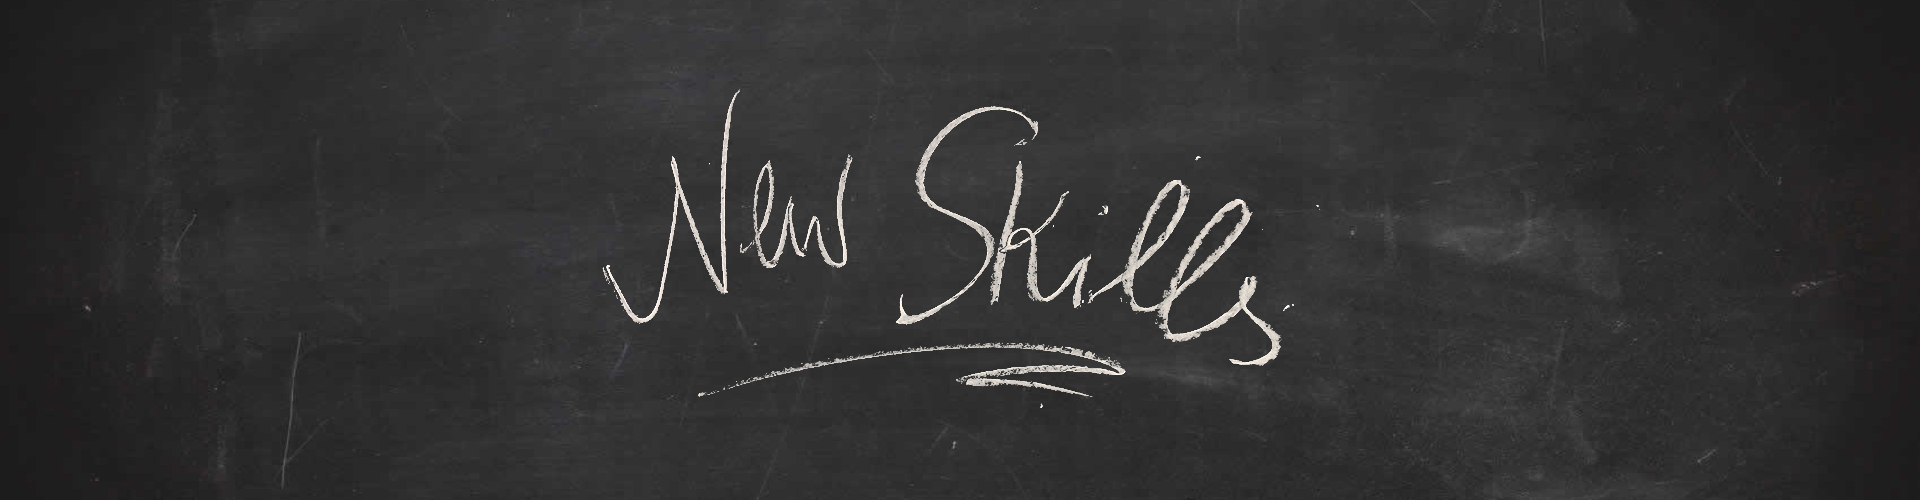 New Skills